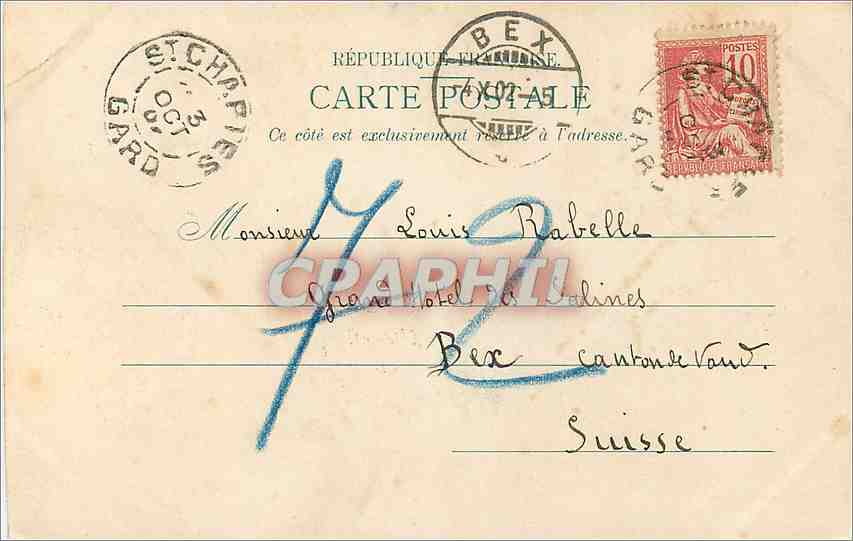 St CHAPTES
3
OCT
02
GARD
RÉPUBLIQUE FRANÇAISE.
CARTE POSTALE
Ce côté est exclusivement réservé à l'adresse.
BEX
4.X.02.-5
POSTES
10
REPUBLIQUE FRANÇAISE
GARD
72
Monsieur Louis Rabelle
Grand Hotel des Salines
Bex canton de Vaud.
Suisse
CPAPHIL